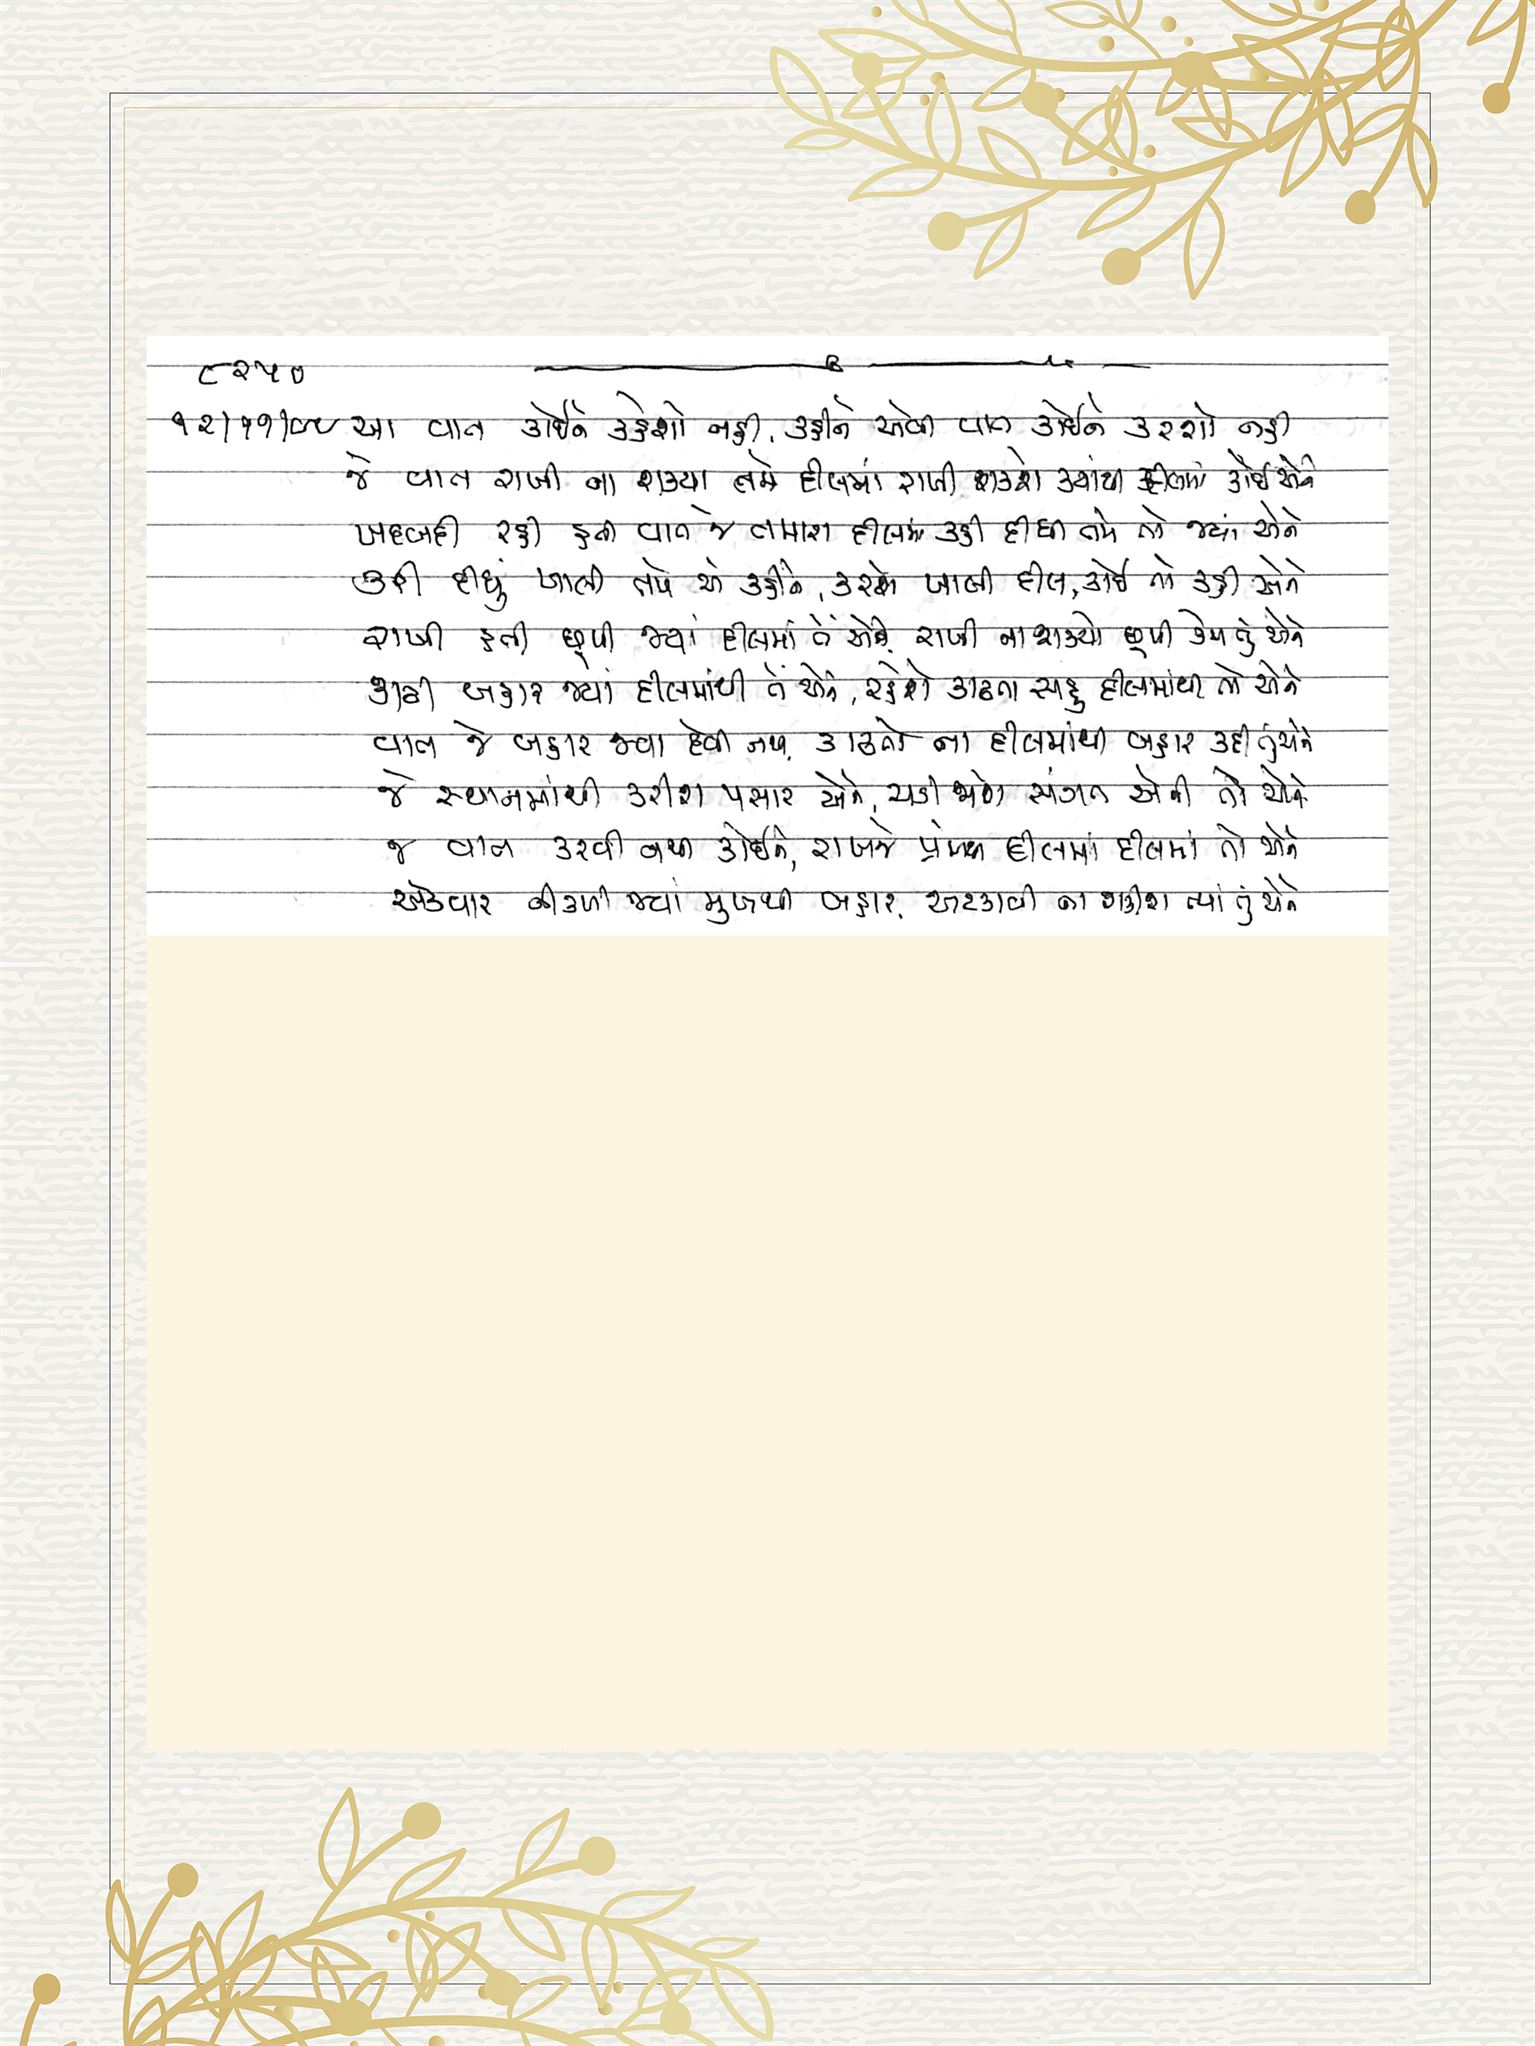 ૮૨૫૦
૧૨/૧૧/૯૯ આ વાત કોઈને કહેશો નહી, કહીને એવી વાત કોઈને કરશો નહી
જે વાત રાખી ના શક્યા તમે દીલમાં રાખી શકશે ક્યાંથી દીલમાં કોઈ એને
ખદબદી રહી હતી વાત જે તમારા દીલમાં કહી દીધી તમે તો જ્યાં એને
કરી દીધું ખાલી તમે એ કહીને, કરશે ખાલી દીલ, કોઈ તો કહી એને
રાખી હતી છૂપી જ્યાં દીલમાં તેં એને, રાખી ના શક્યો છૂપી કેમ તું એને
કાઢી બહાર જ્યાં દીલમાંથી તેં એને, રહેશે કાઢતા સહુ દીલમાંથી તો એને
વાત જે બહાર જવા દેવી નથી, કાઢતો ના દીલમાંથી બહાર કદી તું એને
જે સ્થાનમાંથી કરીશ પસાર એને, ચડી જાશે રંગત એની તો એને
જે વાત કરવી નથી કોઈને, રાખજે દીલમાં દીલમાં તો એને
એકવાર નીકળી જ્યાં મુખથી બહાર, અટકાવી ના શકીશ ત્યાં તું એને